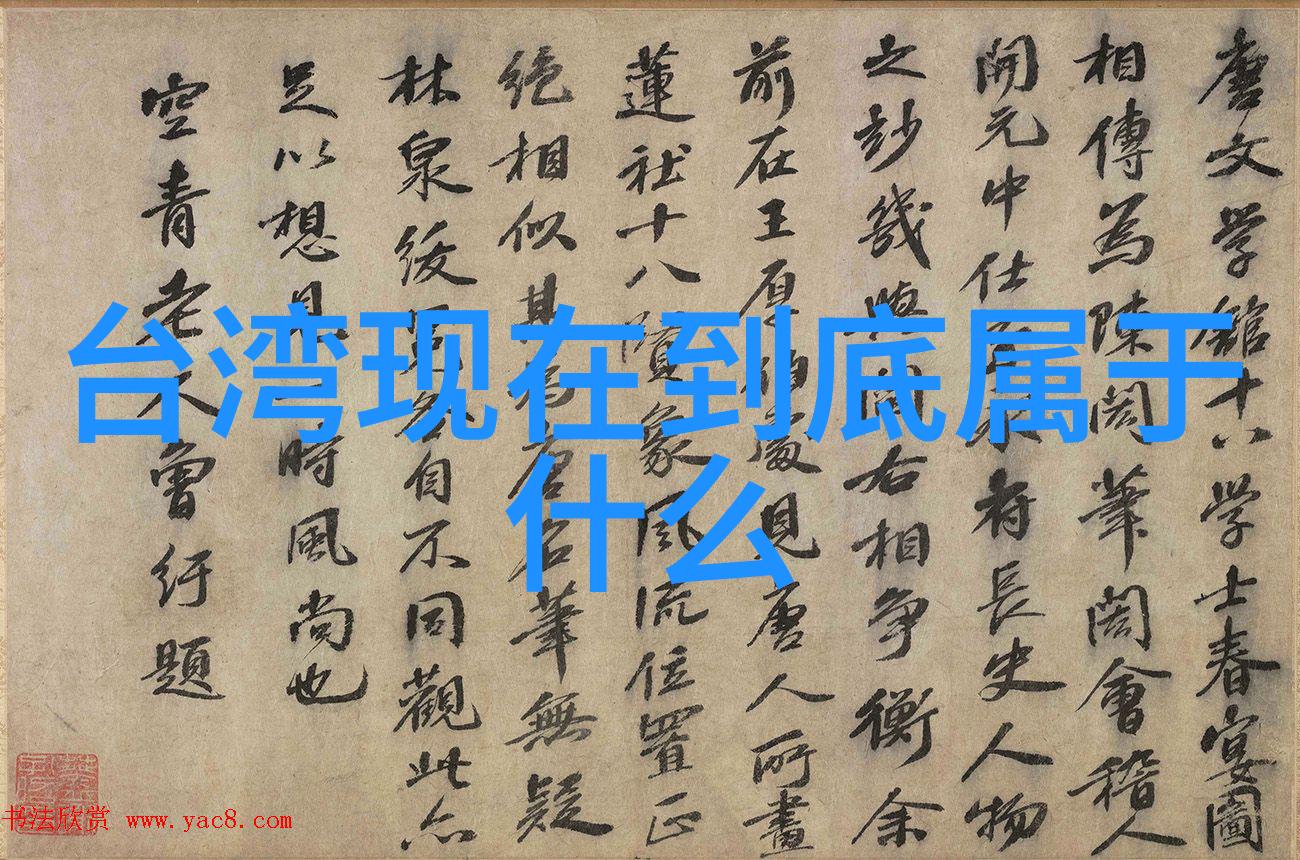 唐文学舘十八学士春宴圖
相傳為陳閎筆閎會稽人
開元中仕
府長史人物
之妙幾與
右相争衡余
前在王厚伯處見唐人所畫
蓮社十八
象風流位置正
絶相似其為唐名筆無疑
林泉後
自不同觀此亦
足以想見
時風尚也
空青老人曾紆題
台湾现在到底属于
什么
书法欣赏 www.yac8.com